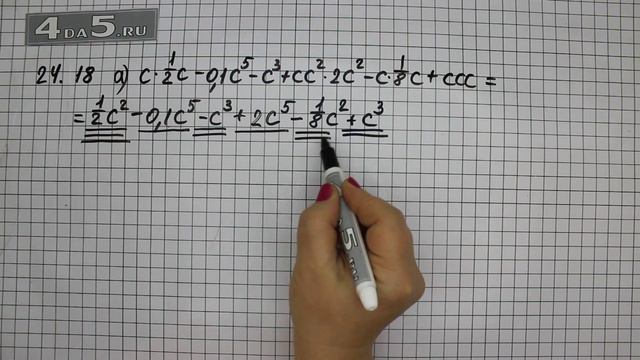 4DA5.RU
24. 18 а) c·½c-0,1c⁵-c³+cc²·2c²-c·⅛c+ccc=
=½c²-0,1c⁵-c³+2c⁵-⅛c²+c³
5